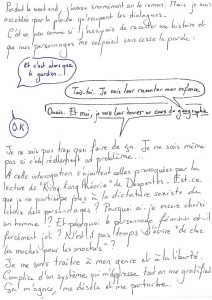 Pendant le week-end, j'avance énormément sur le roman. Mais je suis
accablée par la place qu'occupent les dialogues.
C'est un peu comme si j'essayais de raconter une histoire et
que mes personnages me coupaient sans cesse la parole :
Et c'est alors que
le gardien...
Tais-toi. Je vais leur raconter mon enfance.
Ouais. Et moi, je vais leur donner un cours de géographie
O.K
Je ne sais pas trop quoi faire de ça. Je ne sais même
pas si c'est réellement un problème...
A cette interrogation s'ajoutent celles provoquées par la
lecture de "King Kong théorie" de Despentes. Est-ce
que je ne participe pas à la dictature sexiste du
choix des personnages ? Pourquoi ai-je encore choisi
un homme ? Et pourquoi le personnage féminin est-il
forcément joli ? N'est-il pas temps d'écrire "de chez
les moches pour les moches" ?
Je me sens traître à mon genre et à la liberté.
Complice d'un système qui m'oppresse tout en me gratifiant
Ça m'agace, me désole et me perturbe.